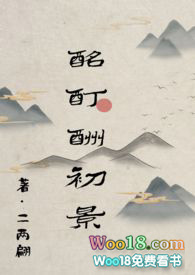 酩酊酬初景
著·二两翩
Woo18.com
Woo18免费看书